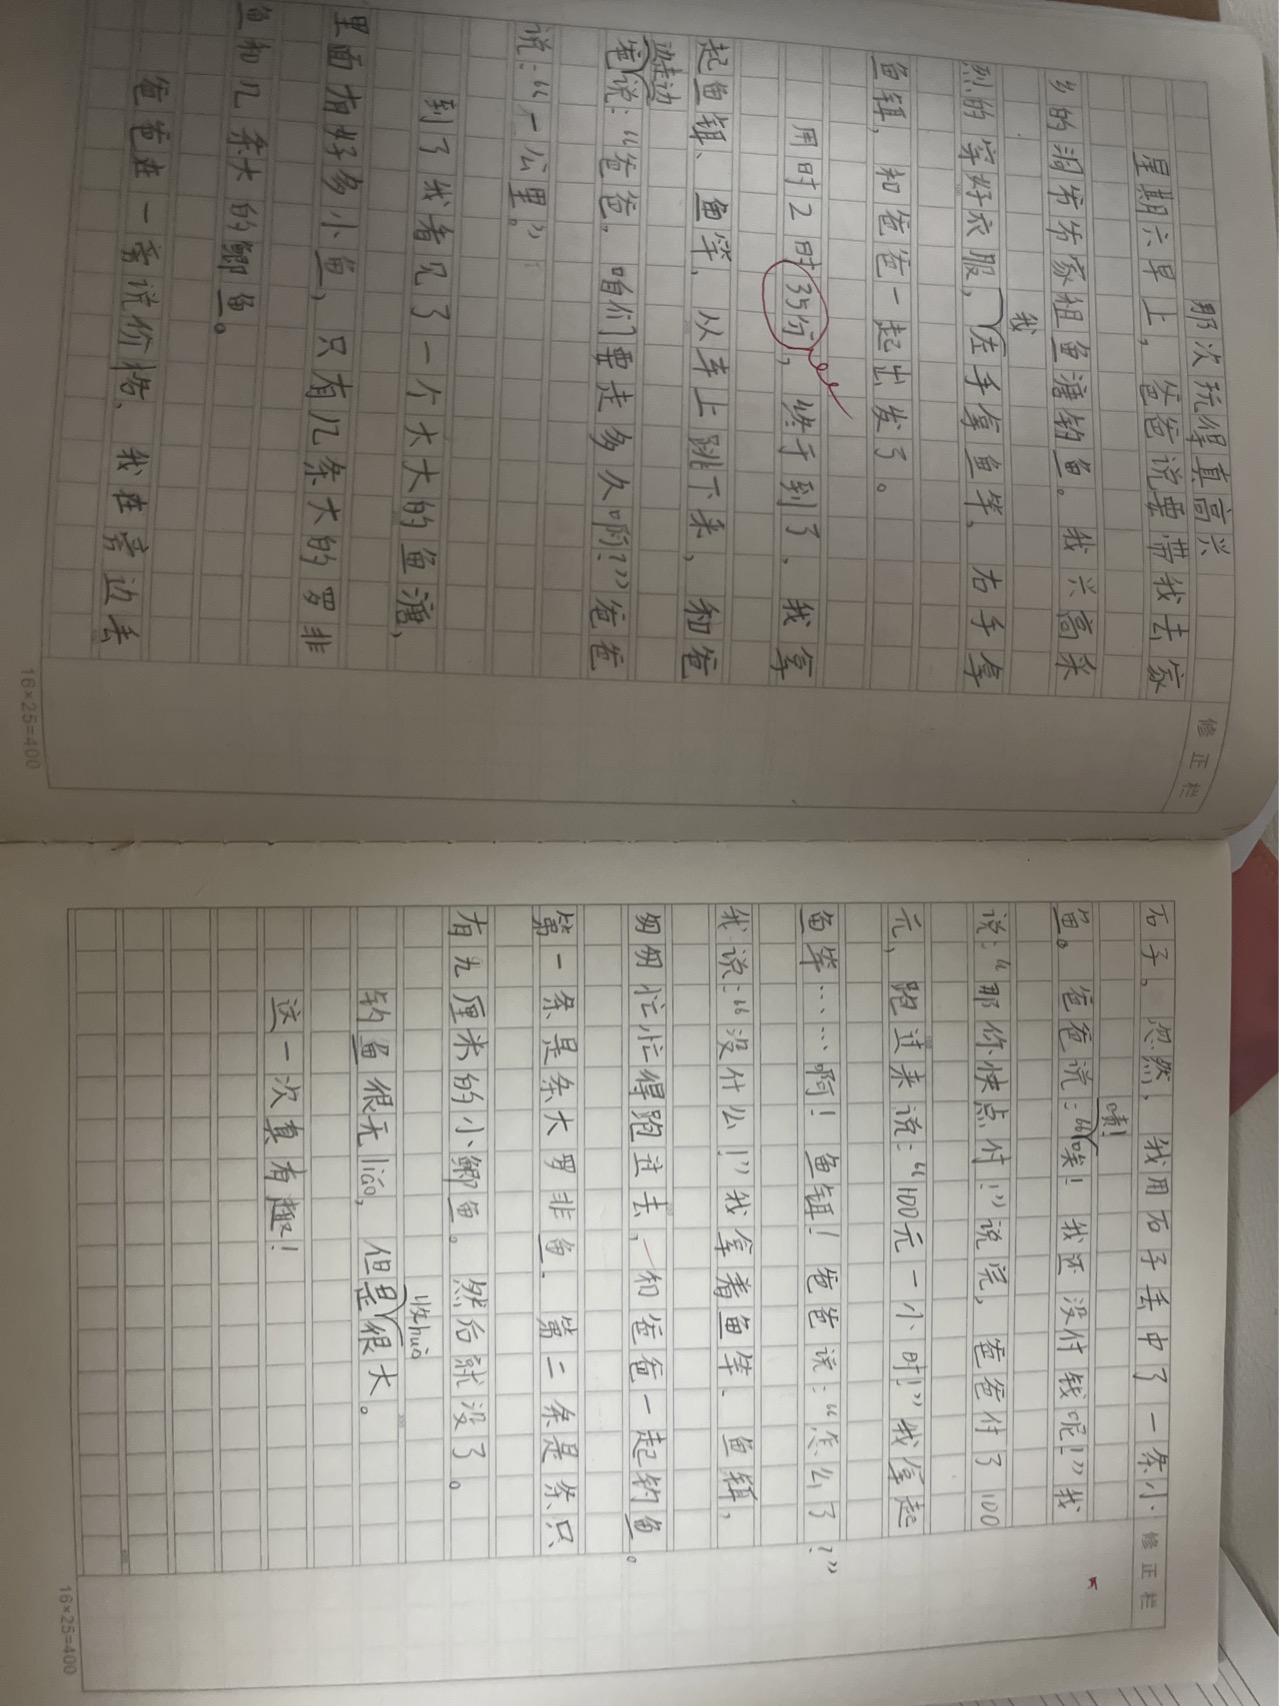 那次玩得真高兴
星期六早上，爸爸说要带我去家
乡的洞穷穷家租鱼溏钓鱼。我兴高采
我
烈的穿好衣服，左手拿鱼竿，右手拿
鱼饵，和爸爸一起出发了。
用时2时35份，终于到了，我拿
起鱼饵、鱼竿，从车上跳下来，和爸
边走边
爸说：“爸爸，咱们要走多久啊？”爸爸
说：“一公里。”
到了我看见了一个大大的鱼溏，
里面有好多小鱼，只有几条大的罗非
鱼和几条大的鲫鱼。
爸爸在一旁说价格，我在旁边丢
修正栏
16×25=400
石子。忽然，我用石子丢中了一条小
啧！
鱼。爸爸说：“唉！我还没付钱呢！”我
说：“那你快点付！”说完，爸爸付了100
元，跑过来说：“100元一小时！”我拿起
鱼竿……啊！鱼饵！爸爸说：“怎么了？”
我说：“没什么！”我拿着鱼竿、鱼饵，
匆匆忙忙得跑过去，和爸爸一起钓鱼。
第一条是条大罗非鱼，第二条是条只
有九厘米的小鲫鱼。然后就没了。
收huò
钓鱼很无liáo，但是很大。
这一次真有趣！
修正栏
16×25=400